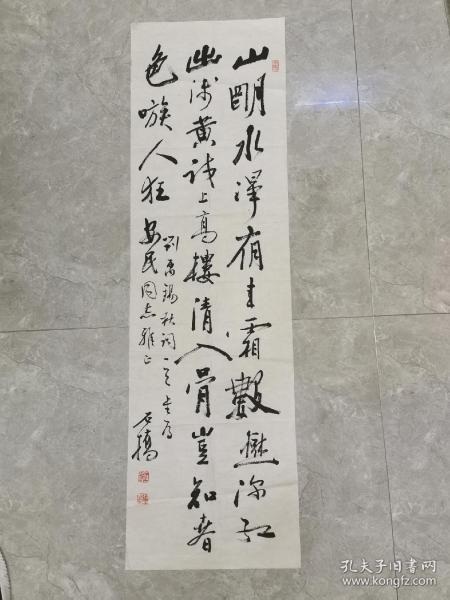 山明水淨夜来霜數樹深红
出浅黄试上高樓清入骨豈如春
色嗾人狂
劉禹錫秋詞一首
安民同志雅正
石橋
孔夫子旧书网
www.kongfz.com